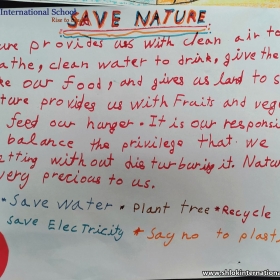 International School
Rise to
SAVE NATURE
ure provides us with clean air to
athe, clean water to drink, give the
ke our food, and gives us land to s
ture provides us with Fruits and veg
feed our hunger. It is our respons
balance the privilege that we
etting without disturburing it. Natu
very precious to us.
*Save water * plant tree *Recycle
save Electricity *Say no to plast
www.shlokinternational.com